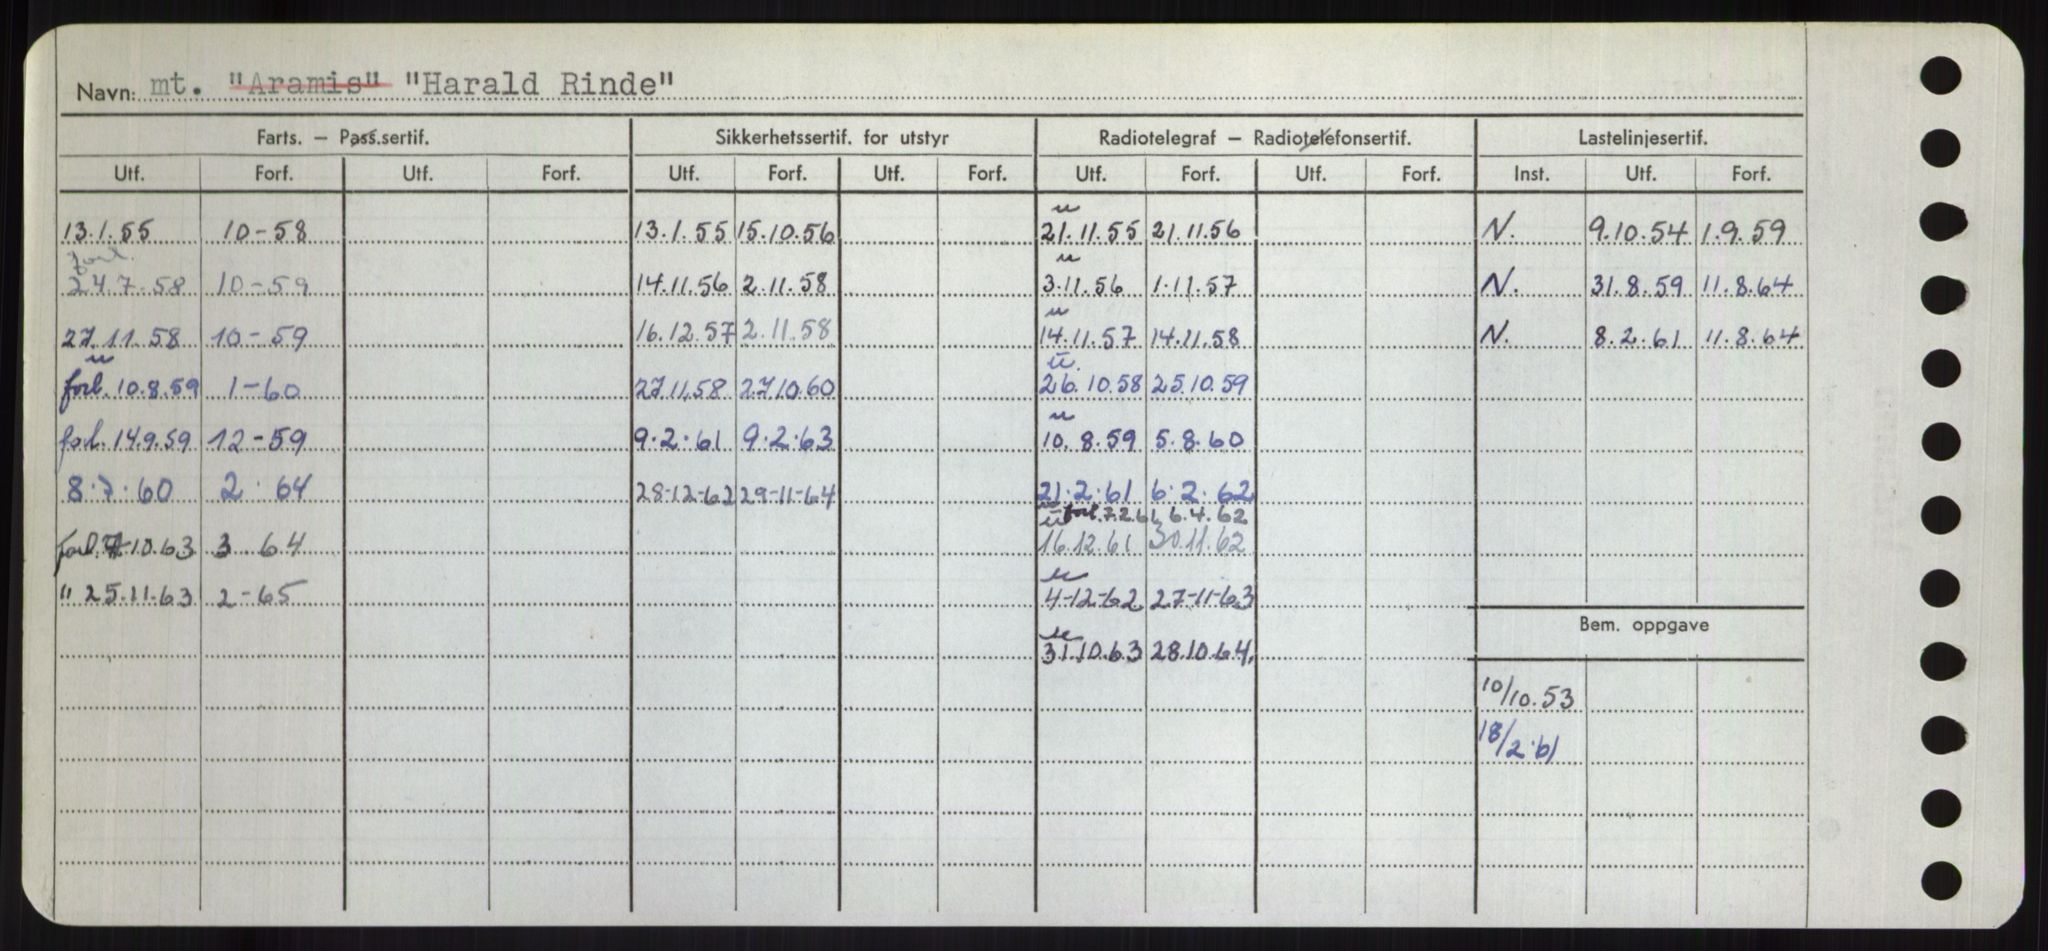 Navn: mt. "Aramis" "Harald Rinde"
Farts. — Pass.sertif. Sikkerhetssertif. for utstyr Radiotelegraf — Radiotelefonsertif. Lastelinjesertif.
Utf. Forf. Utf. Forf. Utf. Forf. Utf. Forf. Utf. Forf. Utf. Forf. Inst. Utf. Forf.
u
13.1.55 10-58 13.1.55 15.10.56 21.11.55 21.11.56 N. 9.10.54 1.9.59
forl. u
24.7.58 10-59 14.11.56 2.11.58 3.11.56 1.11.57 N. 31.8.59 11.8.64
u
27.11.58 10-59 16.12.57 2.11.58 14.11.57 14.11.58 N. 8.2.61 11.8.64
u u
forl. 10.8.59 1-60 27.11.58 27.10.60 26.10.58 25.10.59
u
forl. 14.9.59 12-59 9.2.61 9.2.63 10.8.59 5.8.60
8.7.60 2.64 28-12-62 29-11-64 21.2.61 6.2.62
u forl. 7.2.61 6.4.62
forl. 7.10.63 3.64 16.12.61 30.11.62
u
" 25.11.63 2-65 4-12-62 27-11-63
Bem. oppgave
u
31.10.63 28.10.64.
10/10.53
18/2.61